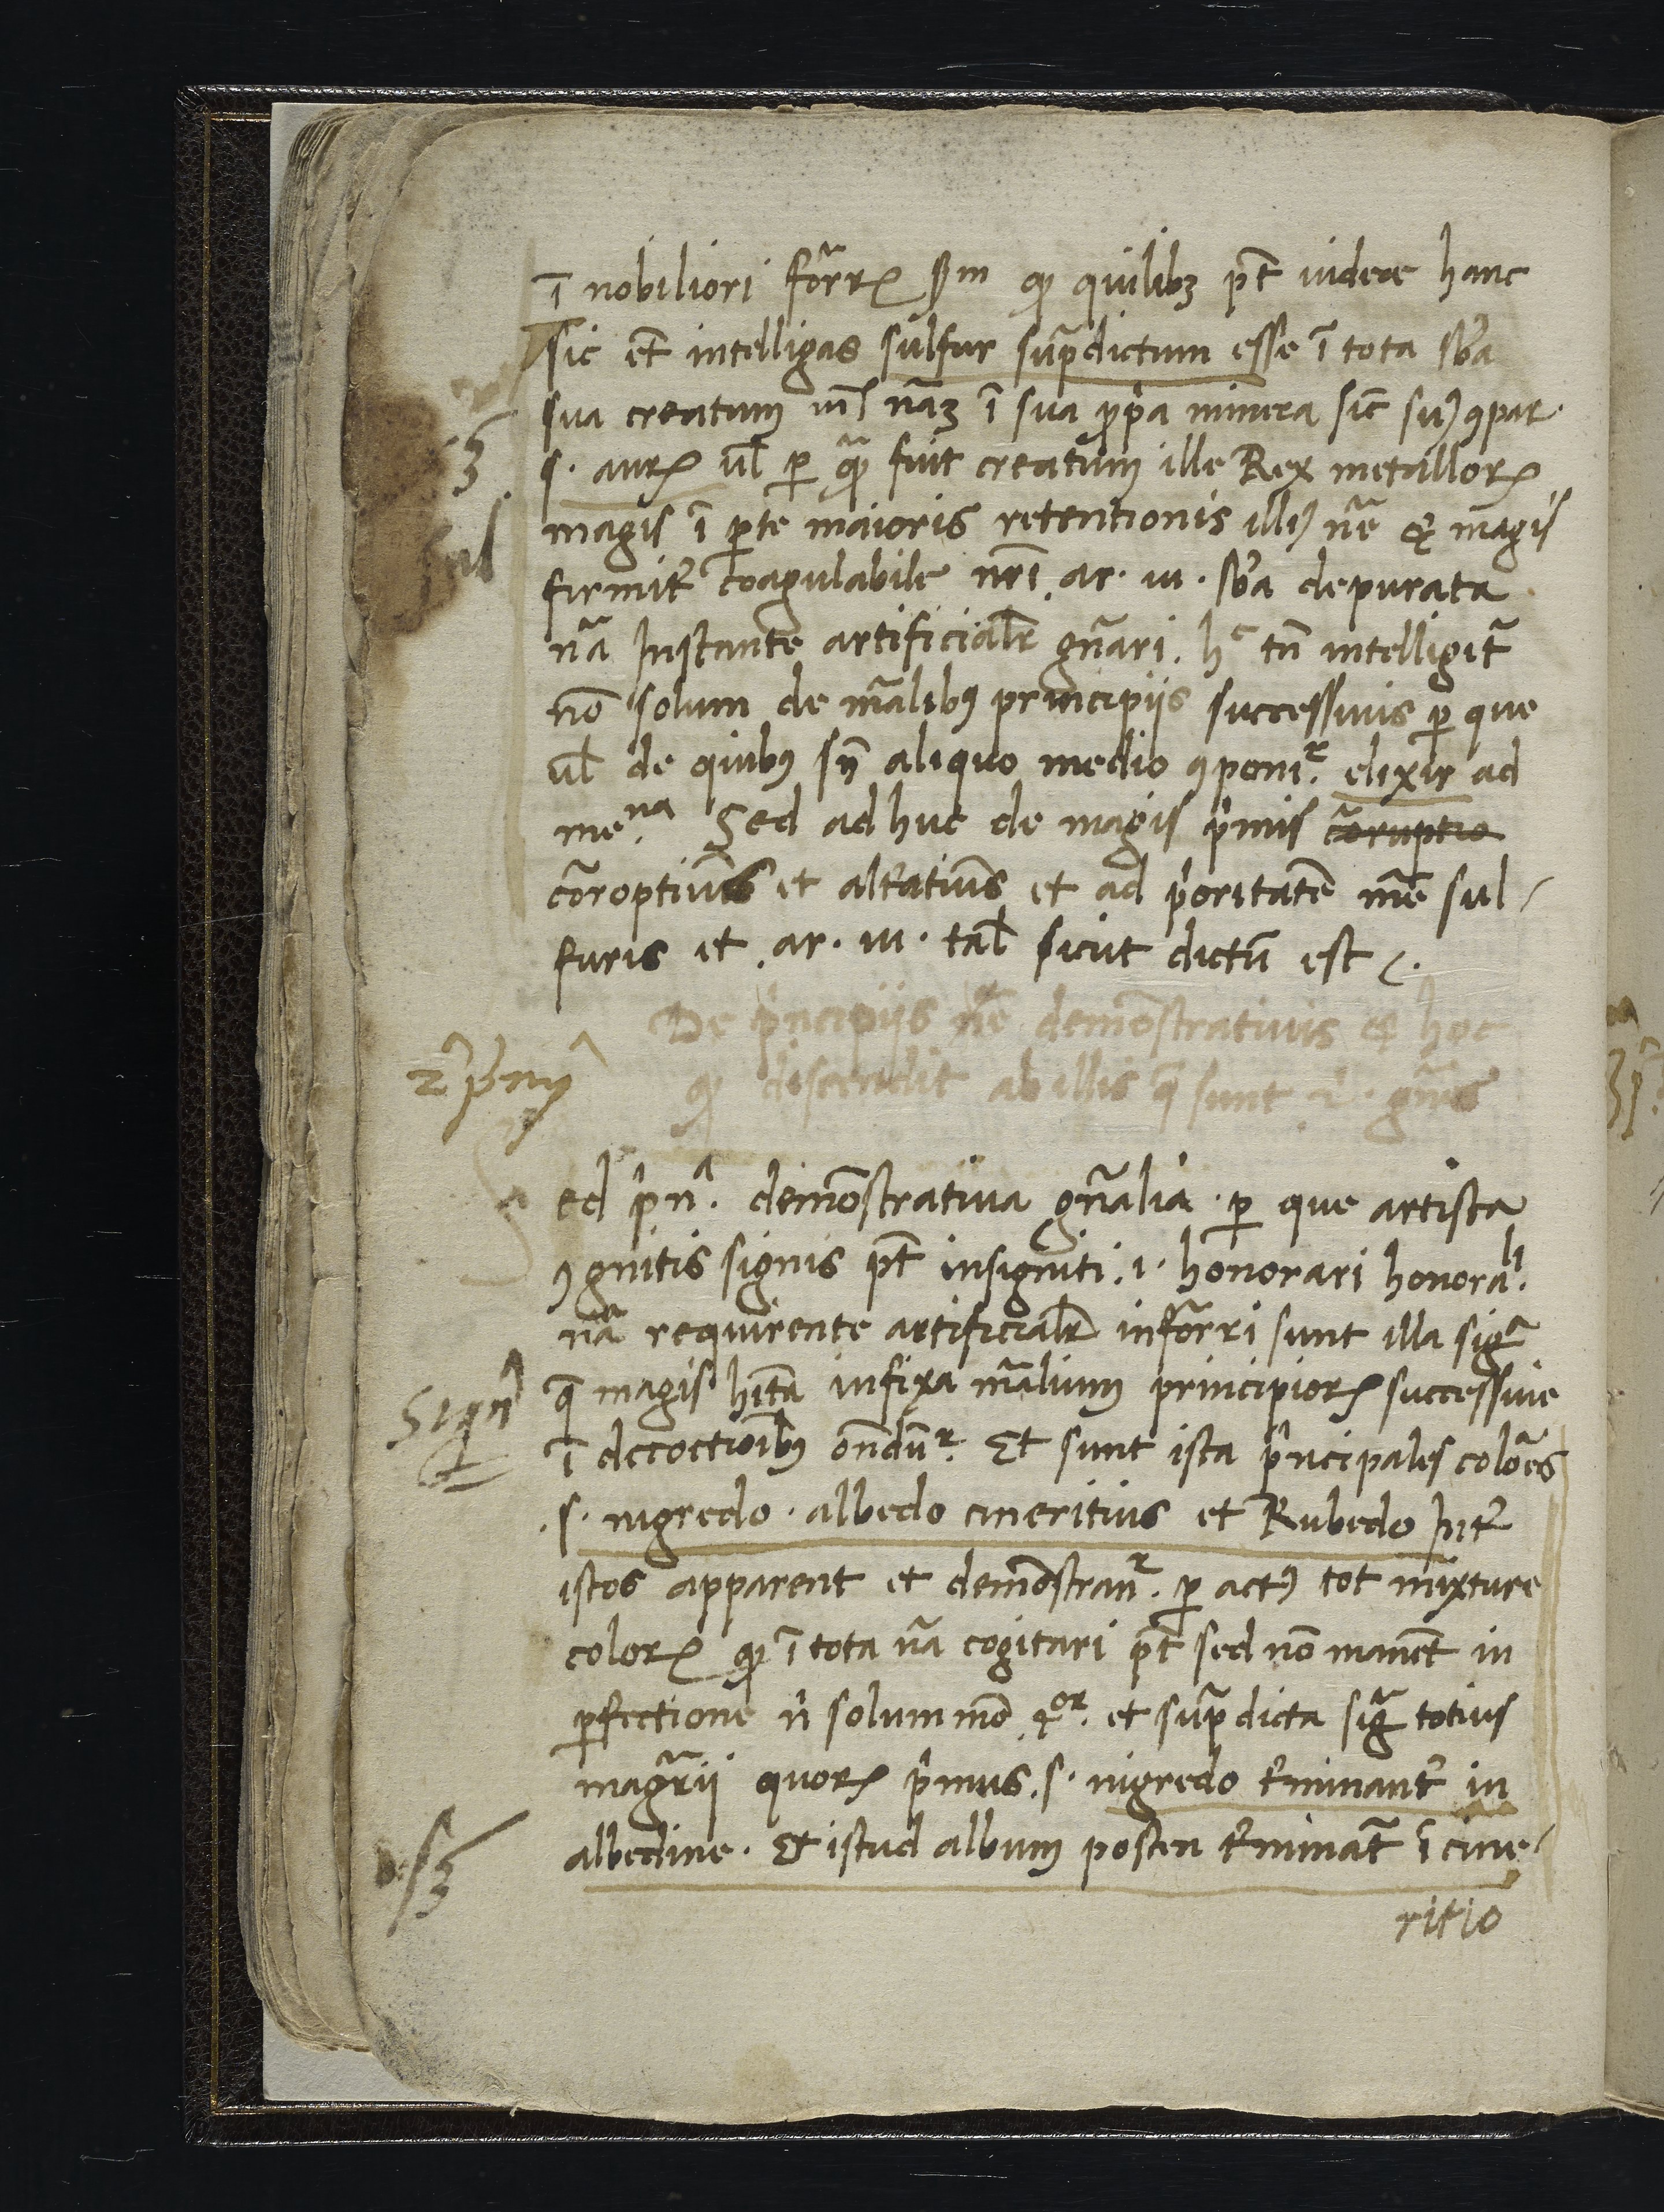 ī nobiliori fōrꝝ ẜm ꝙ quilibꝫ pt̄ uidere hanc
sic et̄ intelligas sulfur sup̄dictum esse ī tota sb̄a
sua creatum nāꝫ ī sua ꝓp̄a minera sic̄ ꝯpar
s. auꝝ ul̄ ꝑ fuit creatum ille Rex metalloꝝ
magis ī ꝑte maioris retentionis nr̄e ⁊ magis
firmit̄ coagulabile nr̄i ar. ui. sb̄a depurata
nā Instante artificialr̄ gn̄ari. hᶜ tn̄ intelligit̄
nō solum de mālibꝰ principiis successiuis ꝑ que
ul̄ de quibꝰ sn̄ aliquo medio ꝯponiʳ. elixir ad
meⁿᵃ. Sed ad huc de magis p̄mis cōruptio
cōroptiuis et alt̄atiuis et ad p̄oritatē mē sul-
furis et ar. ui. tal̄ sicut dictū est
De p̄ncipiis nr̄e demōstratiuis ⁊ hoc
ꝙ discendit ab illis q̄ sunt gn̄is
ed p̄nᵃ. demōstratiua gn̄alia. ꝑ que artista
ꝯgnitis signis pt̄ insigniti .i. honorari honoraˡⁱ.
nā requirente artificialr̄ infōrri sunt illa sigᵃ
Signᵃ
q̄ magis hītā infixa mālium principioꝝ successiue
ī decoctioībꝰ ondūʳ. Et sunt ista p̄ncipales colōes
.s. nigredo. albedo cineritius et Rubedo Int̄
istos apparent et demōstranʳ. ꝑ actꝰ tot mixture
coloꝝ ꝙ ī tota nā cogitari pt̄ sed nō manēt in
ꝑfectione n̄ solummō 4ᵒʳ. et sup̄dicta sigᵃ totius
magr̄ii quoꝝ p̄mus .s. nigredo t̄minant̄ in
albedine. Et istud album postea t̄minat̄ ī cine-
ritio